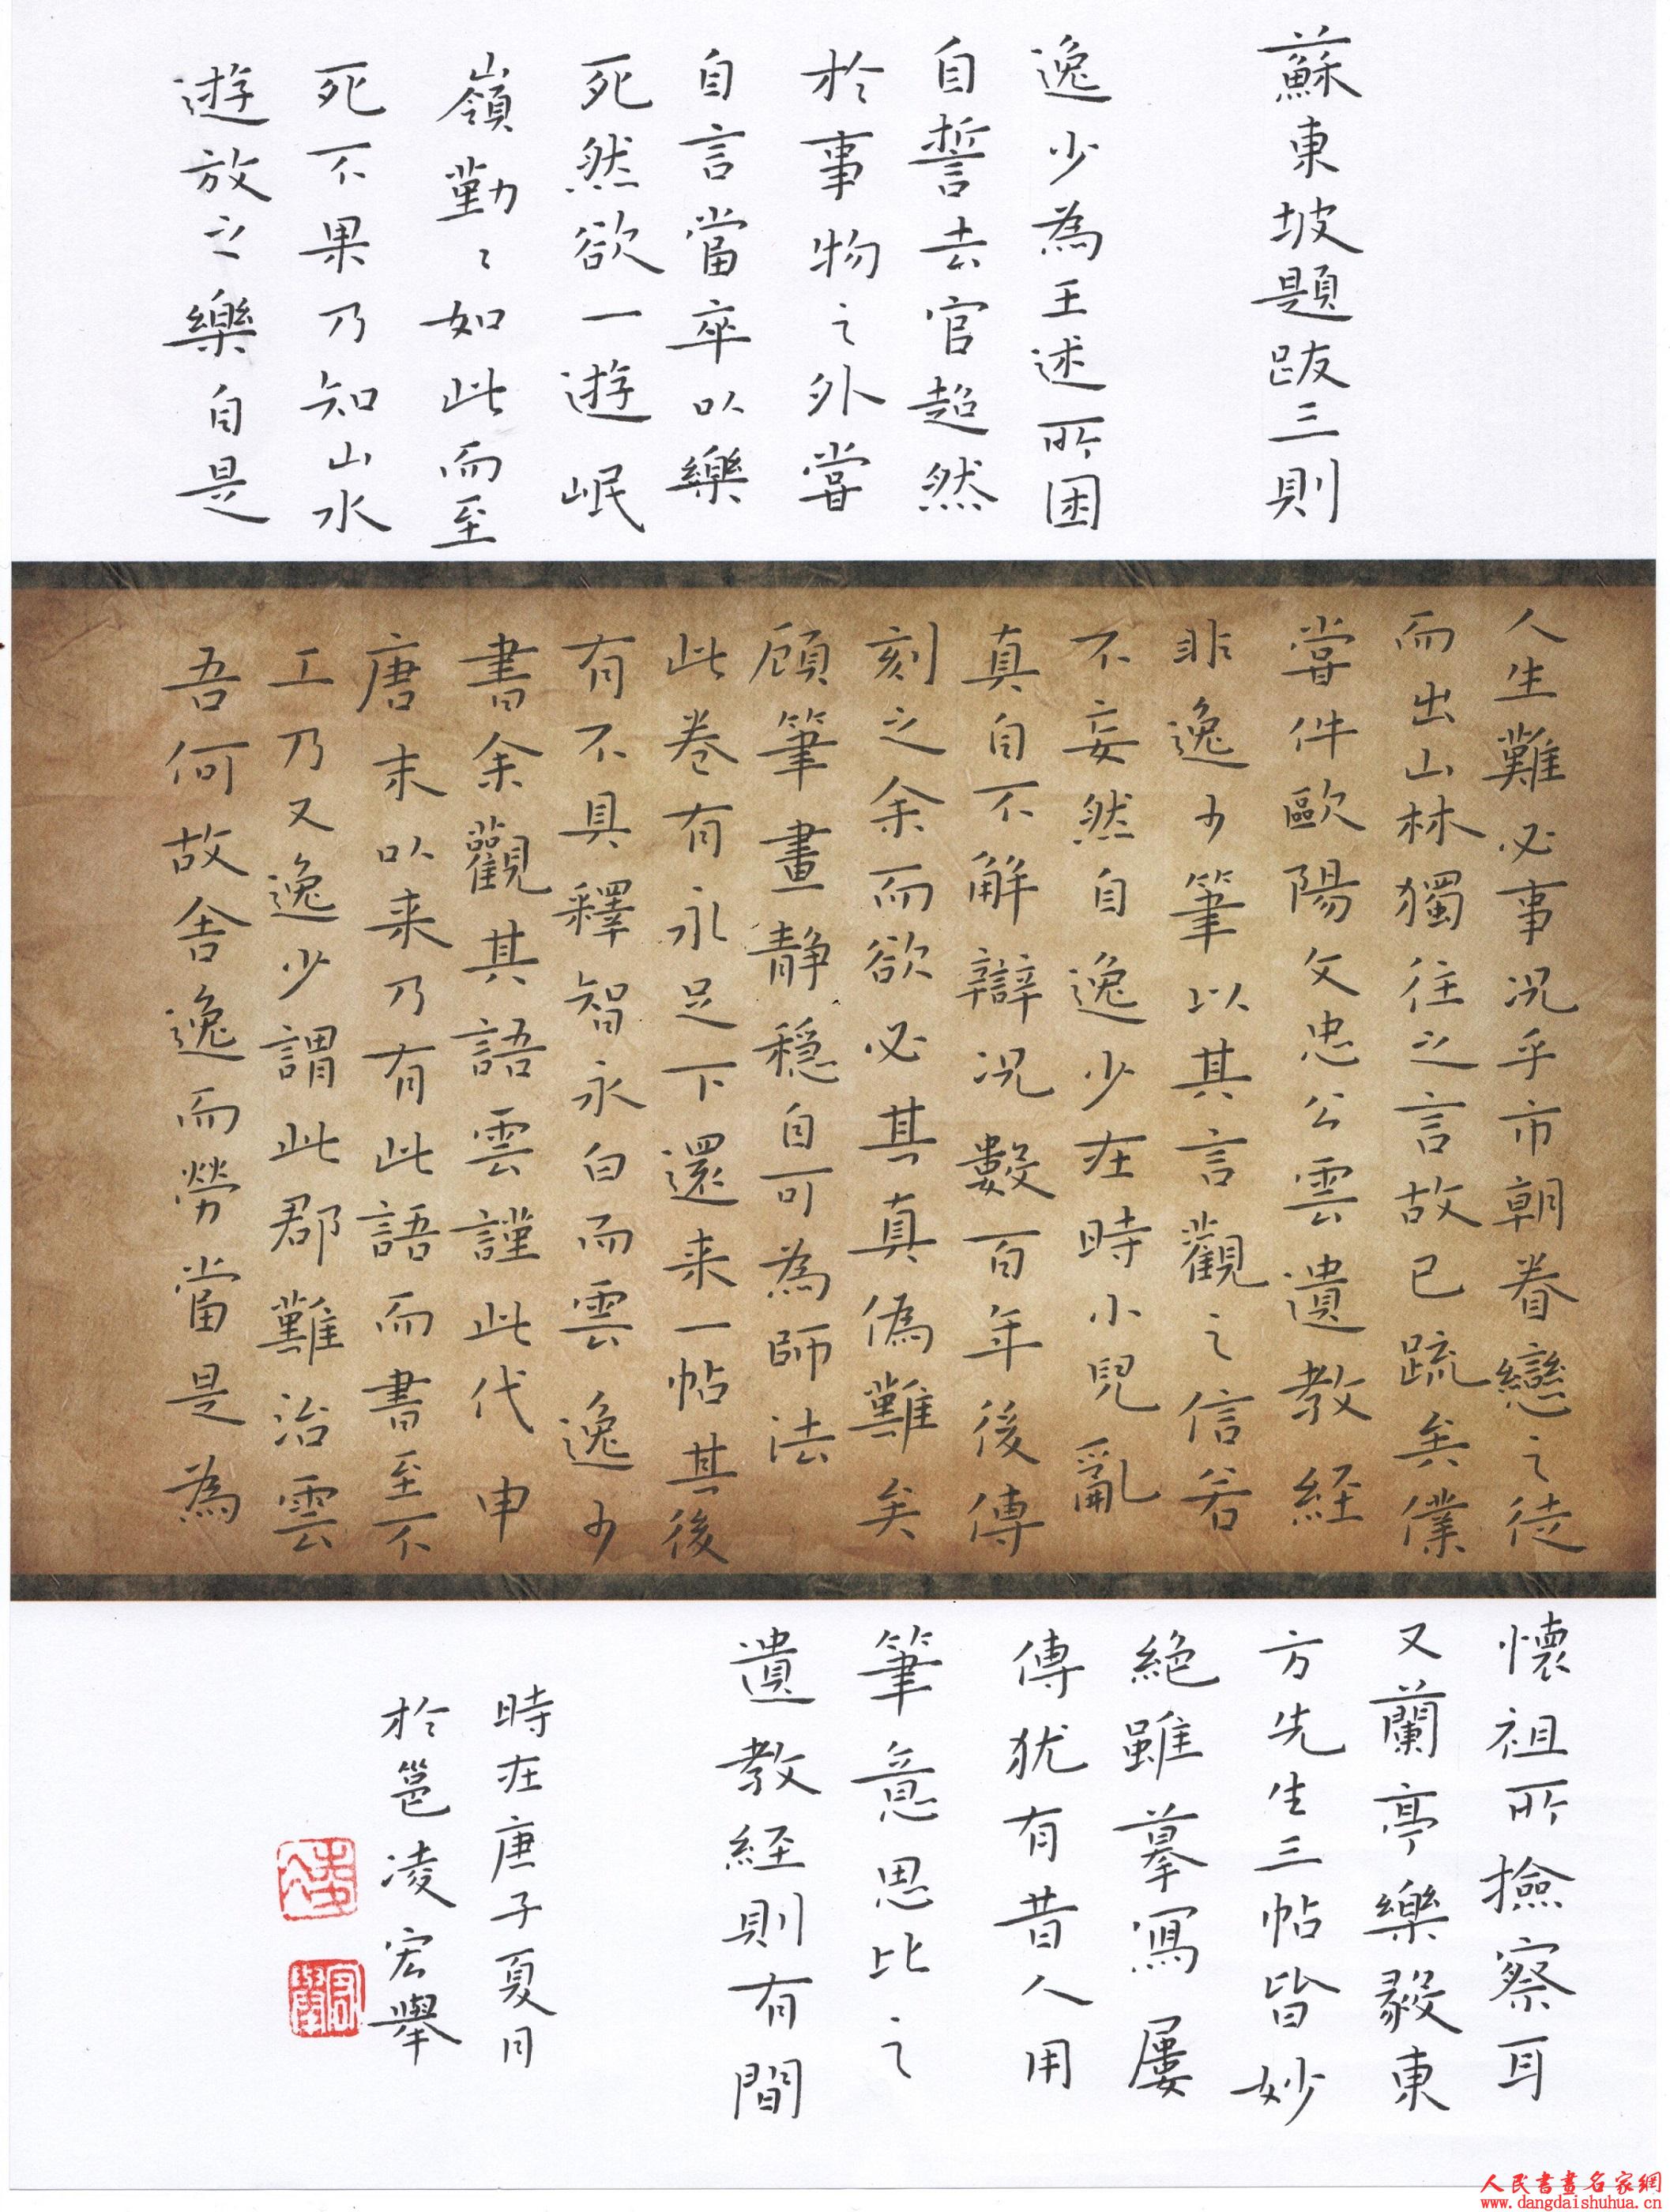 蘇東坡題跋三則
逸少為王述所困
自誓去官超然
於事物之外嘗
自言當卒以樂
死然欲一遊岷
嶺勤々如此而至
死不果乃知山水
遊放之樂自是
人生難必事况乎市朝眷戀之徒
而出山林獨往之言故已疏矣僕
嘗件歐陽文忠公雲遺教経
非逸少筆以其言觀之信若
不妄然自逸少在時小兒亂
真自不解辯况數百年後傳
刻之余而欲必其真偽難矣
顧筆畫静穩自可為師法
此卷有永足下還来一帖其後
有不具釋智永白而雲逸少
書余觀其語雲謹此代申
唐末以来乃有此語而書至不
工乃又逸少謂此郡難治雲
吾何故舍逸而勞當是為
懷祖所撿察耳
又蘭亭樂毅東
方先生三帖皆妙
絕雖摹寫屢
傳犹有昔人用
筆意思比之
遺教経則有間
時在庚子夏月
於邕凌宏舉
人民書畫名家網
www.dangdaishuhua.cn